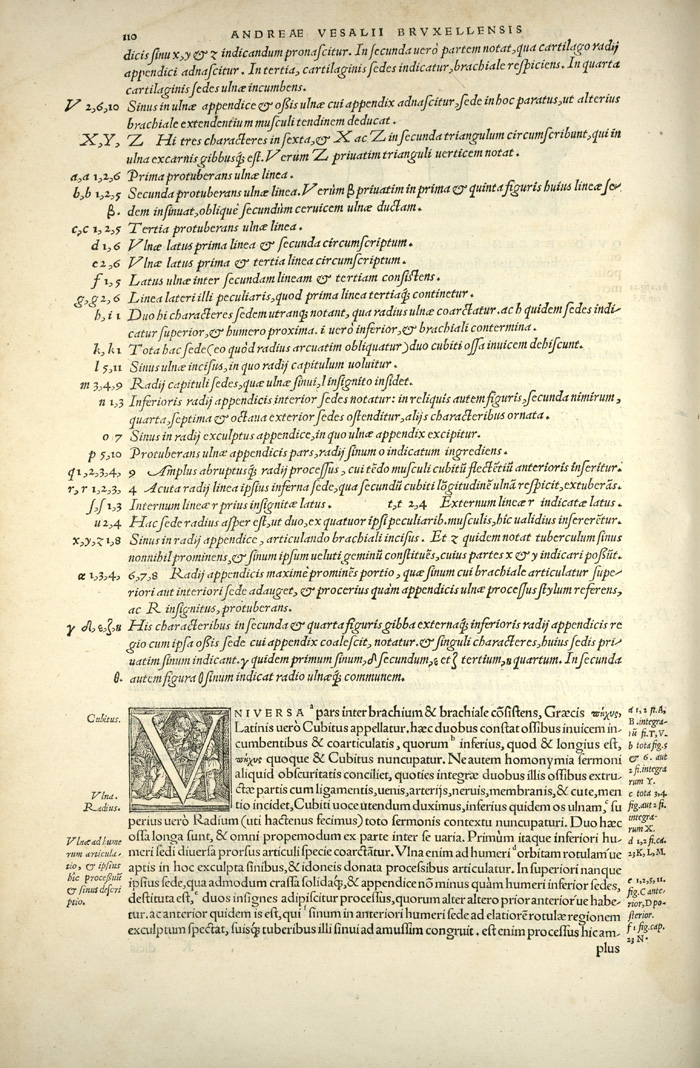 110 ANDREAE VESALII BRVXELLENSIS
dicis sinu x, y & z indicandum pronascitur. In secunda uerò partem notat, qua cartilago radij
appendici adnascitur. In tertia, cartilaginis sedes indicatur, brachiale respiciens. In quarta
cartilaginis sedes ulnæ incumbens.
V 2, 6, 10 Sinus in ulnæ appendice & ossis ulnæ cui appendix adnascitur, sede in hoc paratus, ut alterius
brachiale extendentium musculi tendinem deducat.
X, Y, Z Hi tres characteres in sexta, & X ac Z in secunda triangulum circumscribunt, qui in
ulna excarnis gibbusq́ est. Verùm Z priuatim trianguli uerticem notat.
a, a 1, 2, 6 Prima protuberans ulnæ linea.
b, b 1, 2, 5 Secunda protuberans ulnæ linea. Verùm β priuatim in prima & quinta figuris huius lineæ se-
β. dem insinuat, obliquè secundùm ceruicem ulnæ ductam.
c, c 1, 2, 5 Tertia protuberans ulnæ linea.
d 1, 6 Vlnæ latus prima linea & secunda circumscriptum.
e 2, 6 Vlnæ latus prima & tertia linea circumscriptum.
f 1, 5 Latus ulnæ inter secundam lineam & tertiam consistens.
g, g 2, 6 Linea lateri illi peculiaris, quod prima linea tertiaq́ continetur.
h, i 1 Duo hi characteres sedem utranq́ notant, qua radius ulnæ coarctatur. ac h quidem sedes indi-
catur superior, & humero proxima. i uerò inferior, & brachiali contermina.
k, k 1 Tota hac sede (eo quòd radius arcuatim obliquatur) duo cubiti ossa inuicem dehiscunt.
l 5, 11 Sinus ulnæ incisus, in quo radij capitulum uoluitur.
m 3, 4, 9 Radij capituli sedes, quæ ulnæ sinui, l insignito insidet.
n 1, 3 Inferioris radij appendicis interior sedes notatur: in reliquis autem figuris, secunda nimirum,
quarta, septima & octaua exterior sedes ostenditur, alijs characteribus ornata.
o 7 Sinus in radij exculptus appendice, in quo ulnæ appendix excipitur.
p 5, 10 Protuberans ulnæ appendicis pars, radij sinum o indicatum ingrediens.
q 1, 2, 3, 4, 9 Amplus abruptusq́ radij processus, cui tēdo musculi cubitū flectētiū anterioris inseritur.
r, r 1, 2, 3, 4 Acuta radij linea ipsius inferna sede, qua secundū cubiti lōgitudinē ulnā respicit, extuberās.
s, s 1, 3 Internum lineæ r prius insignitæ latus. t, t 2, 4 Externum lineæ r indicatæ latus.
u 2, 4 Hac sede radius asper est, ut duo, ex quatuor ipsi peculiarib. musculis, hic ualidius insererētur.
x, y, z 1, 8 Sinus in radij appendice, articulando brachiali incisus. Et z quidem notat tuberculum sinus
nonnihil prominens, & sinum ipsum ueluti geminū constituēs, cuius partes x & y indicari possūt.
α 1, 3, 4, 6, 7, 8 Radij appendicis maximè prominēs portio, quæ sinum cui brachiale articulatur supe-
riori aut interiori sede adauget, & procerius quàm appendicis ulnæ processus stylum referens,
ac R insignitus, protuberans.
γ δ, ε, ζ, η His characteribus in secunda & quarta figuris gibba externaq́ inferioris radij appendicis re
gio cum ipsa ossis sede cui appendix coalescit, notatur. & singuli characteres, huius sedis pri-
uatim sinum indicant. γ quidem primum sinum, δ secundum, ε et ζ tertium, η quartum. In secunda
θ. autem figura θ sinum indicat radio ulnæq́ communem.
Cubitus.
VNIVERSA a pars inter brachium & brachiale cōsistens, Græcis πῆχυς,
Latinis uerò Cubitus appellatur. hæc duobus constat ossibus inuicem in-
cumbentibus & coarticulatis, quorum b inferius, quod & longius est,
πῆχυς quoque & Cubitus nuncupatur. Ne autem homonymia sermoni
aliquid obscuritatis conciliet, quoties integræ duobus illis ossibus extru-
ctæ partis cum ligamentis, uenis, arterijs, neruis, membranis, & cute, men
Vlna.
tio incidet, Cubiti uoce utendum duximus, inferius quidem os ulnam, c su
Radius.
perius uerò Radium (uti hactenus fecimus) toto sermonis contextu nuncupaturi. Duo hæc
ossa longa sunt, & omni propemodum ex parte inter se uaria. Primùm itaque inferiori hu-
meri sedi diuersa prorsus articuli specie coarctātur. Vlna enim ad humeri d orbitam rotulam ue
aptis in hoc exculpta sinibus, & idoneis donata processibus articulatur. In superiori nanque
ipsius sede, qua admodum crassa solidaq́, & appendice nō minus quàm humeri inferior sedes,
destituta est, e duos insignes adipiscitur processus, quorum alter altero prior anterior ue habe-
tur. ac anterior quidem is est, qui f sinum in anteriori humeri sede ad elatiorē rotulæ regionem
exculptum spectat, suisq́ tuberibus illi sinui ad amussim congruit. est enim processus hic am-
plus
Vlnæ ad hume
rum articula-
tio, & ipsius
hic processuū
& sinus descri
ptio.
a 1, 2 fi. A,
B. integra-
rū fi. T, V.
b tota fig. 5
& 6. aut
2 fi. integra
rum Y.
c tota 3, 4.
fig. aut 2 fi.
integra-
rum X.
d 1, 2 fi. ca.
23 K, L, M.
e 1, 2, 5, 11.
fig. C ante-
rior, D po-
sterior.
f 1 fig. cap.
23 N.